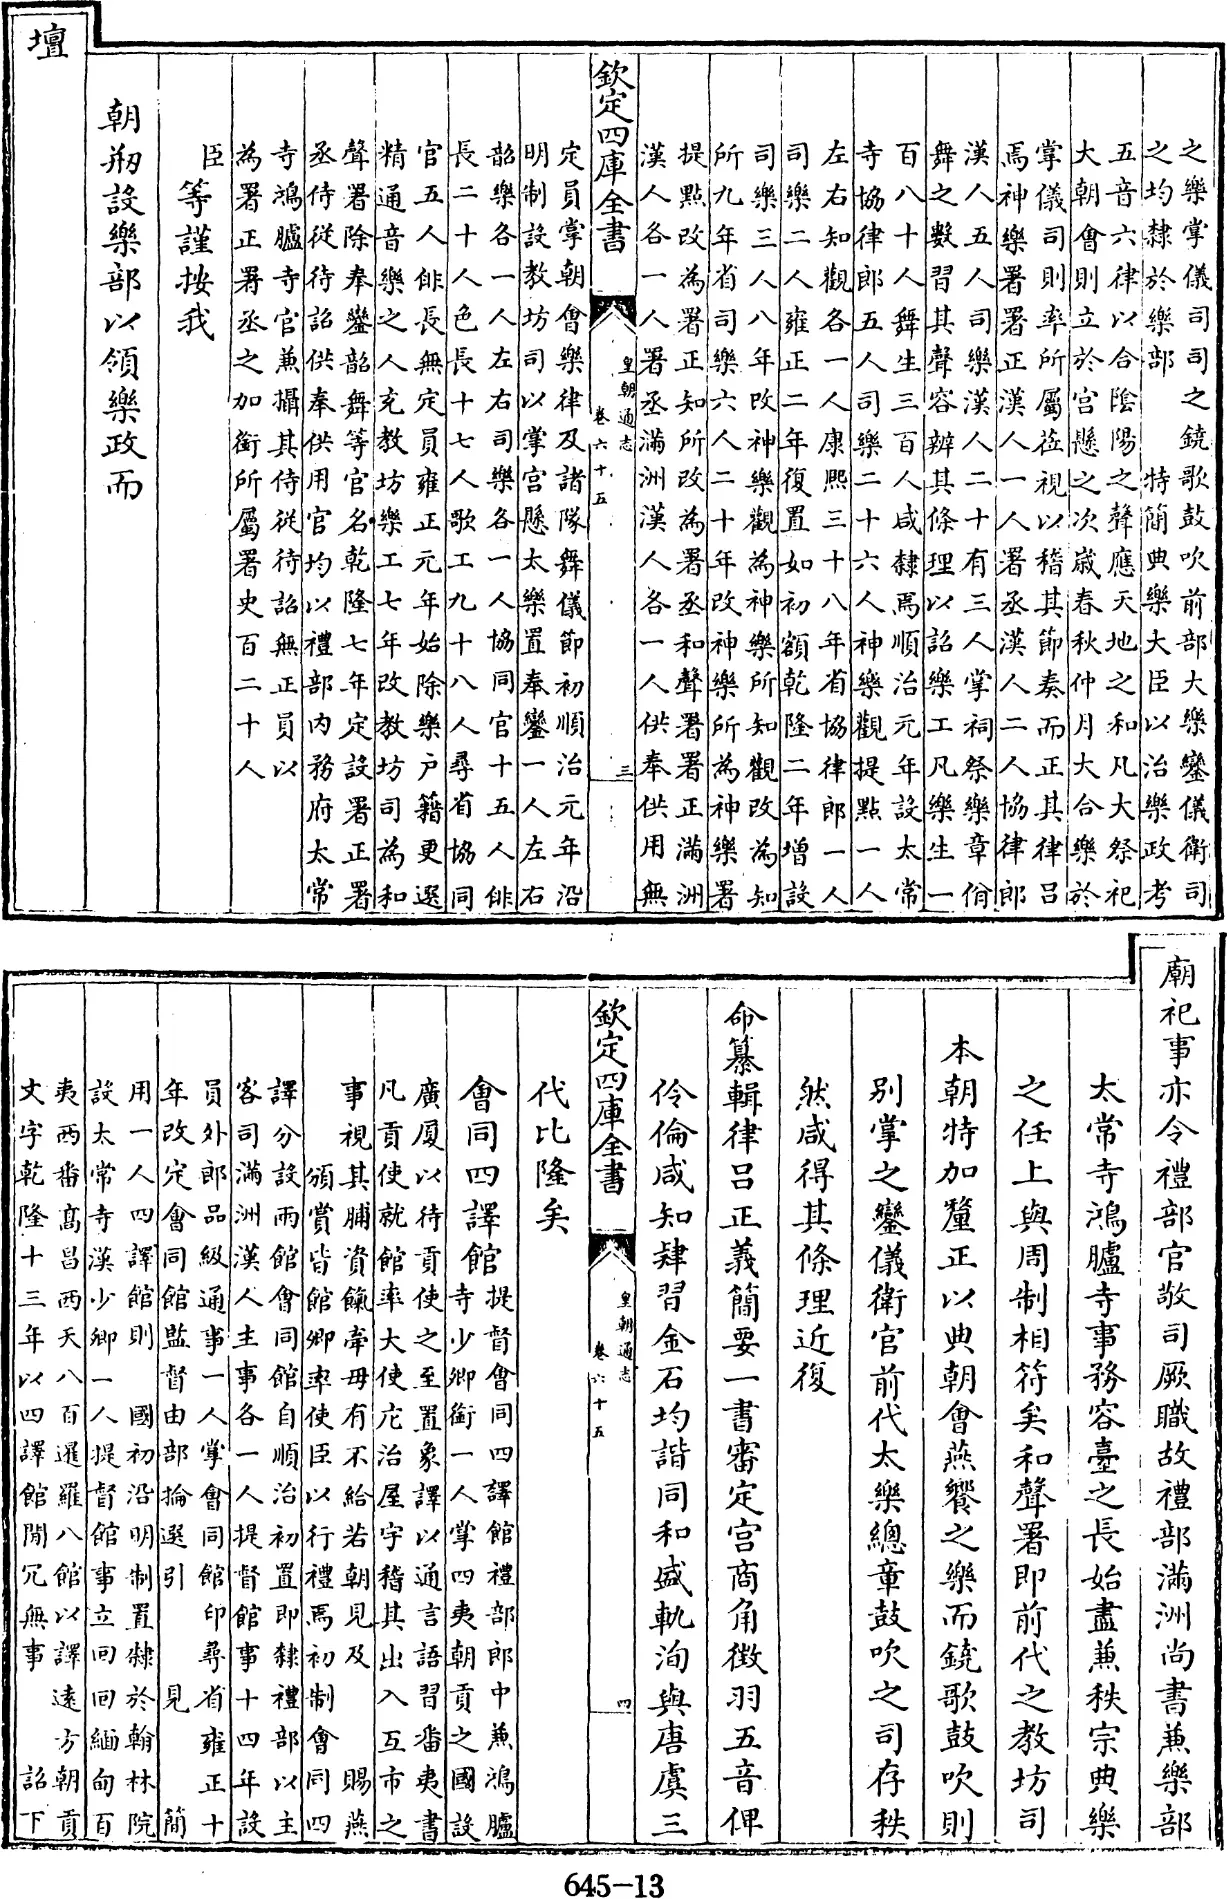 之樂掌儀司之鐃歌鼓吹前部大樂鑾儀衛司
之均隸於樂部　特簡典樂大臣以治樂政考
五音六律以合陰陽之聲應天地之和凡大祭祀
大朝會則立於宫懸之次嵗春秋仲月大合樂於
掌儀司則率所屬莅視以稽其節奏而正其律吕
焉神樂署署正漢人一人署丞漢人二人協律郎
漢人五人司樂漢人二十有三人掌祠祭樂章佾
舞之數習其聲容辨其條理以詔樂工凡樂生一
百八十人舞生三百人咸隸焉順治元年設太常
寺協律郎五人司樂二十六人神樂觀提點一人
左右知觀各一人康熙三十八年省協律郎一人
司樂二人雍正二年復置如初額乾隆二年增設
司樂三人八年改神樂觀為神樂所知觀改為知
所九年省司樂六人二十年改神樂所為神樂署
提點改為署正知所改為署丞和聲署署正滿洲
漢人各一人署丞滿洲漢人各一人供奉供用無
欽定四庫全書
皇朝通志
卷六十五
三
定員掌朝會樂律及諸隊舞儀節初順治元年沿
明制設教坊司以掌宫懸太樂置奉鑾一人左右
韶樂各一人左右司樂各一人協同官十五人俳
長二十人色長十七人歌工九十八人尋省協同
官五人俳長無定員雍正元年始除樂户籍更選
精通音樂之人充教坊樂工七年改教坊司為和
聲署除奉鑾韶舞等官名乾隆七年定設署正署
丞侍從待詔供奉供用官均以禮部内務府太常
寺鴻臚寺官兼攝其侍從待詔無正員以
為署正署丞之加銜所屬署史百二十人
臣等謹按我
朝剏設樂部以領樂政而
壇
廟祀事亦令禮部官敬司厥職故禮部滿洲尚書兼樂部
太常寺鴻臚寺事務容臺之長始盡兼秩宗典樂
之任上與周制相符矣和聲署即前代之教坊司
本朝特加釐正以典朝會燕饗之樂而鐃歌鼓吹則
别掌之鑾儀衛官前代太樂總章鼓吹之司存秩
然咸得其條理近復
命纂輯律吕正義簡要一書審定宫商角徵羽五音俾
伶倫咸知肄習金石均諧同和盛軌洵與唐虞三
欽定四庫全書
皇朝通志
卷六十五
四
代比隆矣
會同四譯館提督會同四譯館禮部郎中兼鴻臚
寺少卿銜一人掌四夷朝貢之國設
廣厦以待貢使之至置象譯以通言語習畨夷書
凡貢使就館率大使庀治屋宇稽其出入互市之
事視其脯資餼牽毋有不給若朝見及　賜燕
頒賞皆館卿率使臣以行禮焉初制會同四
譯分設兩館會同館自順治初置即隸禮部以主
客司滿洲漢人主事各一人提督館事十四年設
員外郎品級通事一人掌會同館印尋省雍正十
年改定會同館監督由部掄選引　見　簡
用一人四譯館則　國初沿明制置隸於翰林院
設太常寺漢少卿一人提督館事立回回緬甸百
夷西番髙昌西天八百暹羅八館以譯遠方朝貢
文字乾隆十三年以四譯館閒冗無事　詔下
645-13